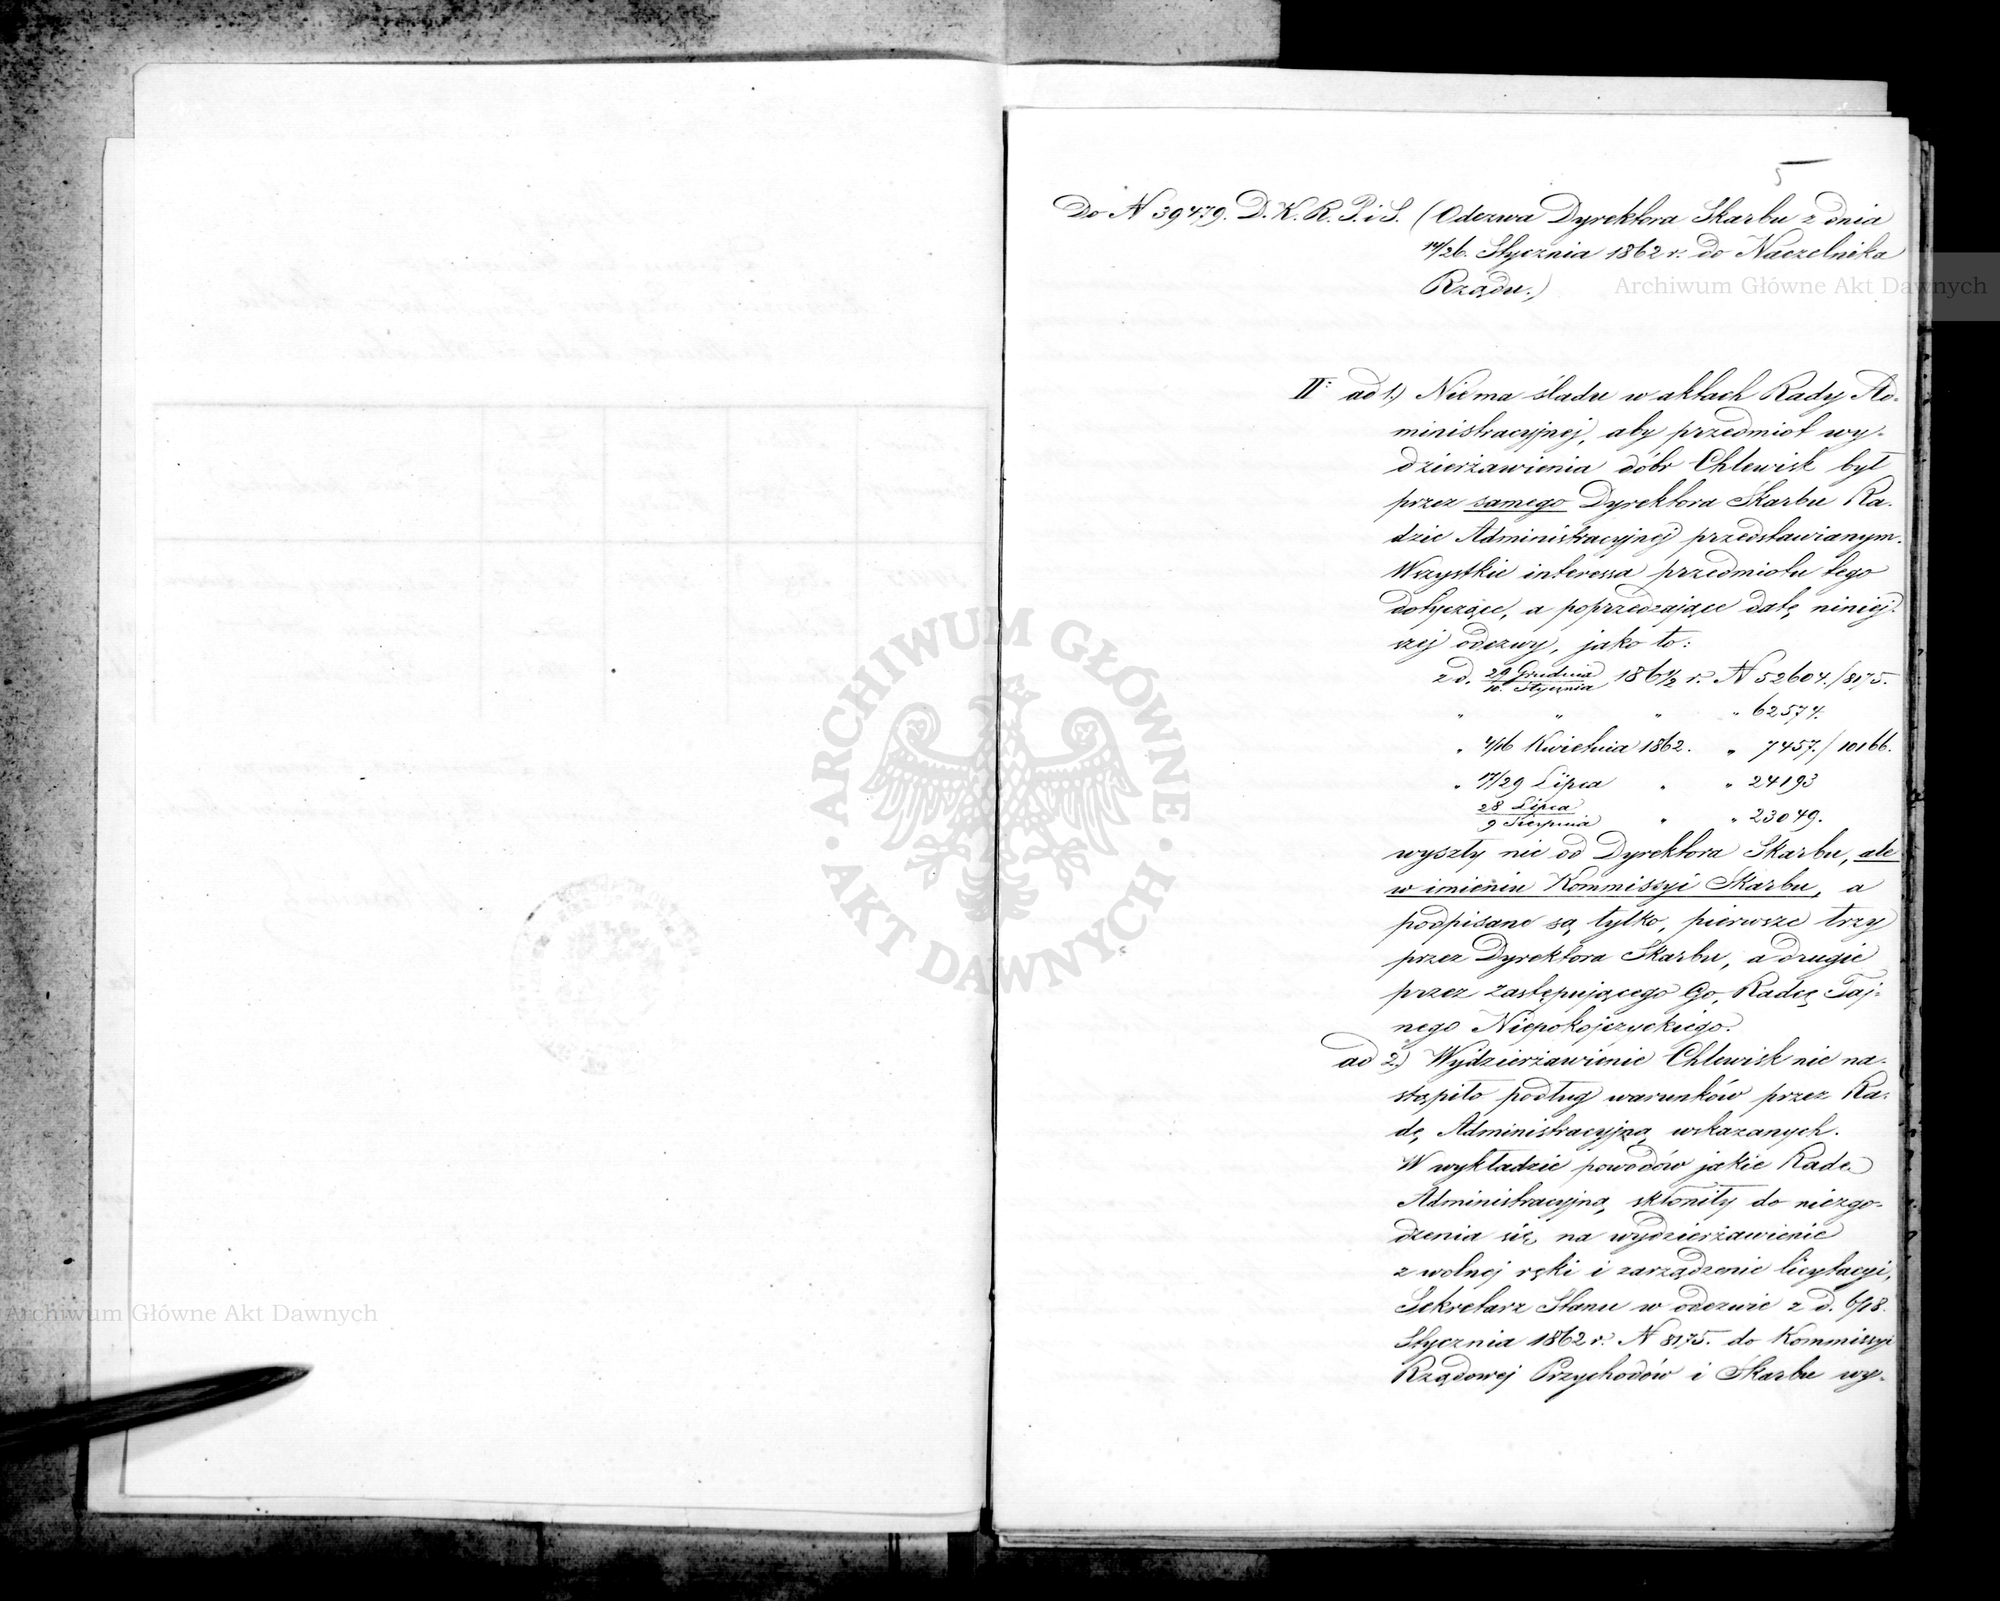 5
Do N 39479. D. K. R. P. i S. (Odezwa Dyrektora Skarbu z dnia
14/26. Stycznia 1862 r. do Naczelnika
Rządu.)
Archiwum Główne Akt Dawnych
II: ad 1.) Niema śladu w aktach Rady Ad-
ministracyjnej, aby przedmiot wy-
dzierżawienia dóbr Chlewisk był
przez samego Dyrektora Skarbu Ra-
dzie Administracyjnej przedstawianym.
Wszystkie interessa przedmiotu tego
dotyczące, a poprzedzające datę niniej-
szej odezwy, jako to:
z d. 29 Grudnia/10. Stycznia 186 1/2 r. N 52604./8175.
" " " " 62574.
" 4/16 Kwietnia 1862. " 7457./10166.
" 17/29 Lipca " " 24193
28 Lipca/9 Sierpnia " " 23049.
wyszły nie od Dyrektora Skarbu, ale
w imieniu Kommissyi Skarbu, a
podpisane są tylko, pierwsze trzy
przez Dyrektora Skarbu, a drugie
przez zastępującego Go, Radcę Taj-
nego Niepokojczyckiego.
ad 2.) Wydzierżawienie Chlewisk nie na-
stąpiło podług warunków przez Ra-
dę Administracyjną wskazanych.
W wykładzie powodów jakie Radę
Administracyjną skłoniły do niezgo-
dzenia się na wydzierżawienie
z wolnej ręki i zarządzenie licytacyi,
Sekretarz Stanu w odezwie z d. 6/18.
Stycznia 1862 r. N 8175. do Kommissyi
Rządowej Przychodów i Skarbu wy-
ARCHIWUM GŁÓWNE AKT DAWNYCH
Archiwum Główne Akt Dawnych